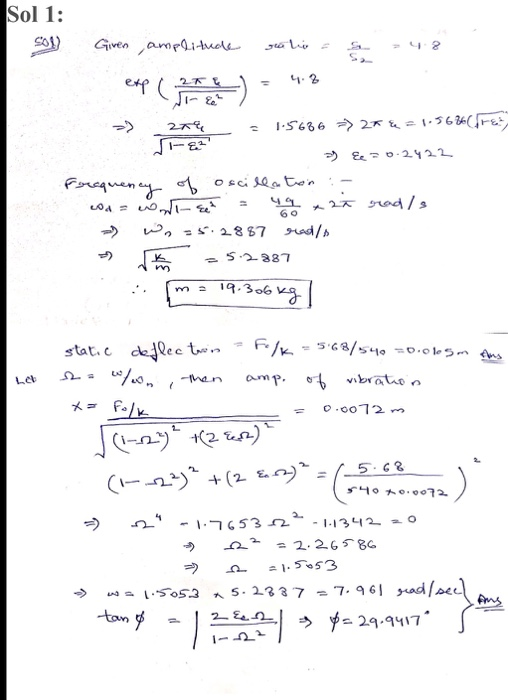 Sol 1:
Sol) Given, amplitude ratio = S₁/S₂ = 4.8
exp (2πξ/√(1-ξ²)) = 4.8
⇒ 2πξ/√(1-ξ²) = 1.5686 ⇒ 2πξ = 1.5686(√(1-ξ²))
⇒ ξ = 0.2422
Frequency of oscillation :-
ωd = ωn√(1-ξ²) = 49/60 × 2π rad/s
⇒ ωn = 5.2887 rad/s
⇒ √(K/m) = 5.2887
∴ m = 19.306 kg
static deflection = F₀/K = 5.68/540 = 0.0105m Ans
Let Ω = ω/ωn, then amp. of vibration
X = F₀/K / √((1-Ω²)² + (2ξΩ)²) = 0.0072 m
(1-Ω²)² + (2ξΩ)² = (5.68 / 540 × 0.0072)²
⇒ Ω⁴ - 1.7653 Ω² - 1.1342 = 0
⇒ Ω² = 2.26586
⇒ Ω = 1.5053
⇒ ω = 1.5053 × 5.2887 = 7.961 rad/sec
tan φ = |2ξΩ / 1-Ω²| ⇒ φ = 29.9417° } Ans